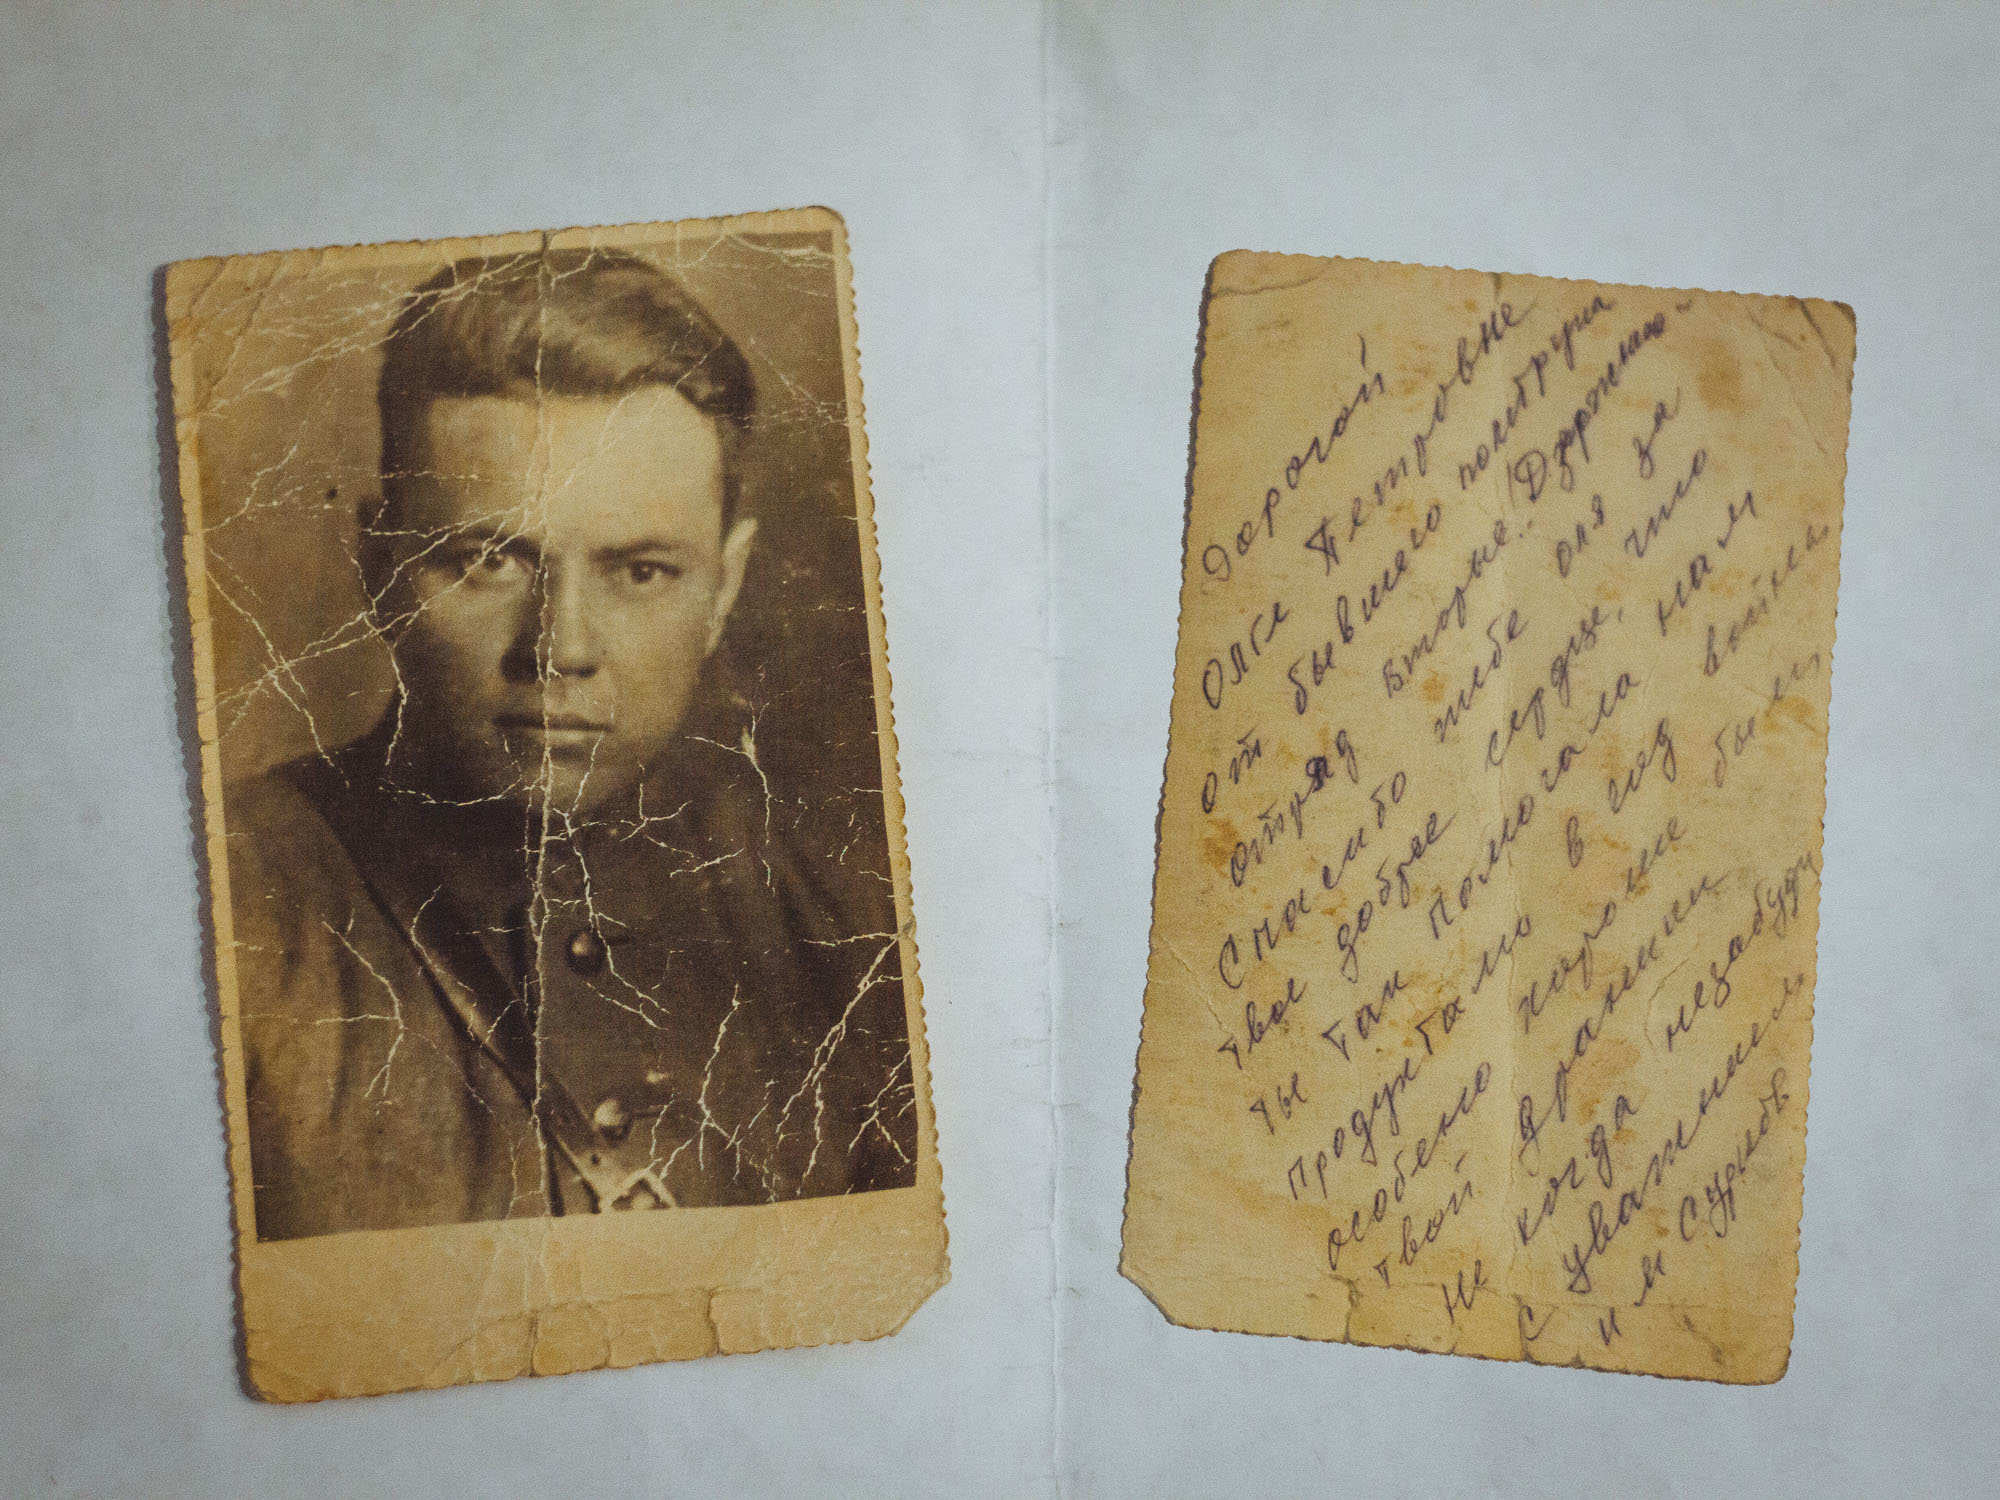 Дорогой
Олге Петровне
от бывшего политрука
отряд вторые Дзержино-
Спасибо тибе оля за
твое добрее сердце, что
ты так Помогала нам
продуктами в
особено хороше были,
твой драники
Не когда незабуду
с уважинием
и м